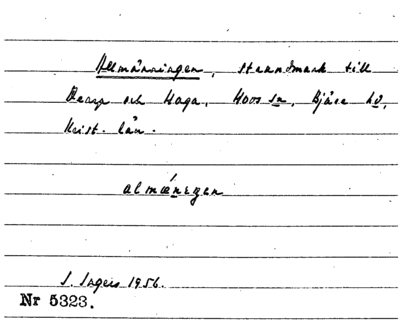 Allmänningen, strandmark till
och Haga, Hovs sn, Bjäre hd,
Krist. län.
almæneŋen
S. Ingers 1956.
Nr 5323.